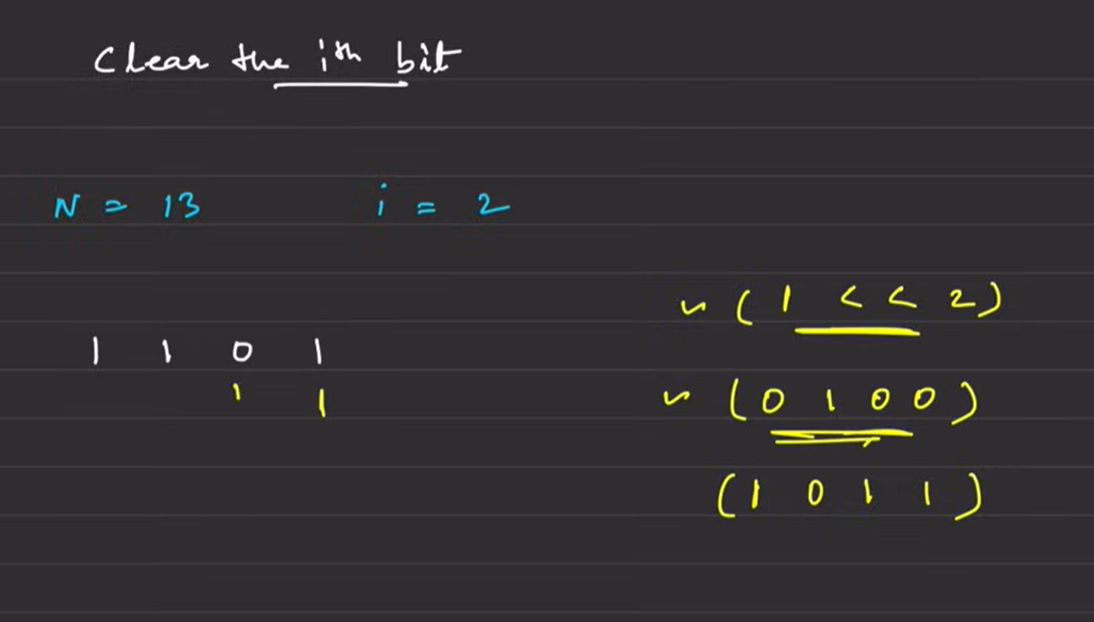 Clear the ith bit
N = 13 i = 2
~ (1 << 2)
1 1 0 1
~ (0 1 0 0)
1 1
(1 0 1 1)